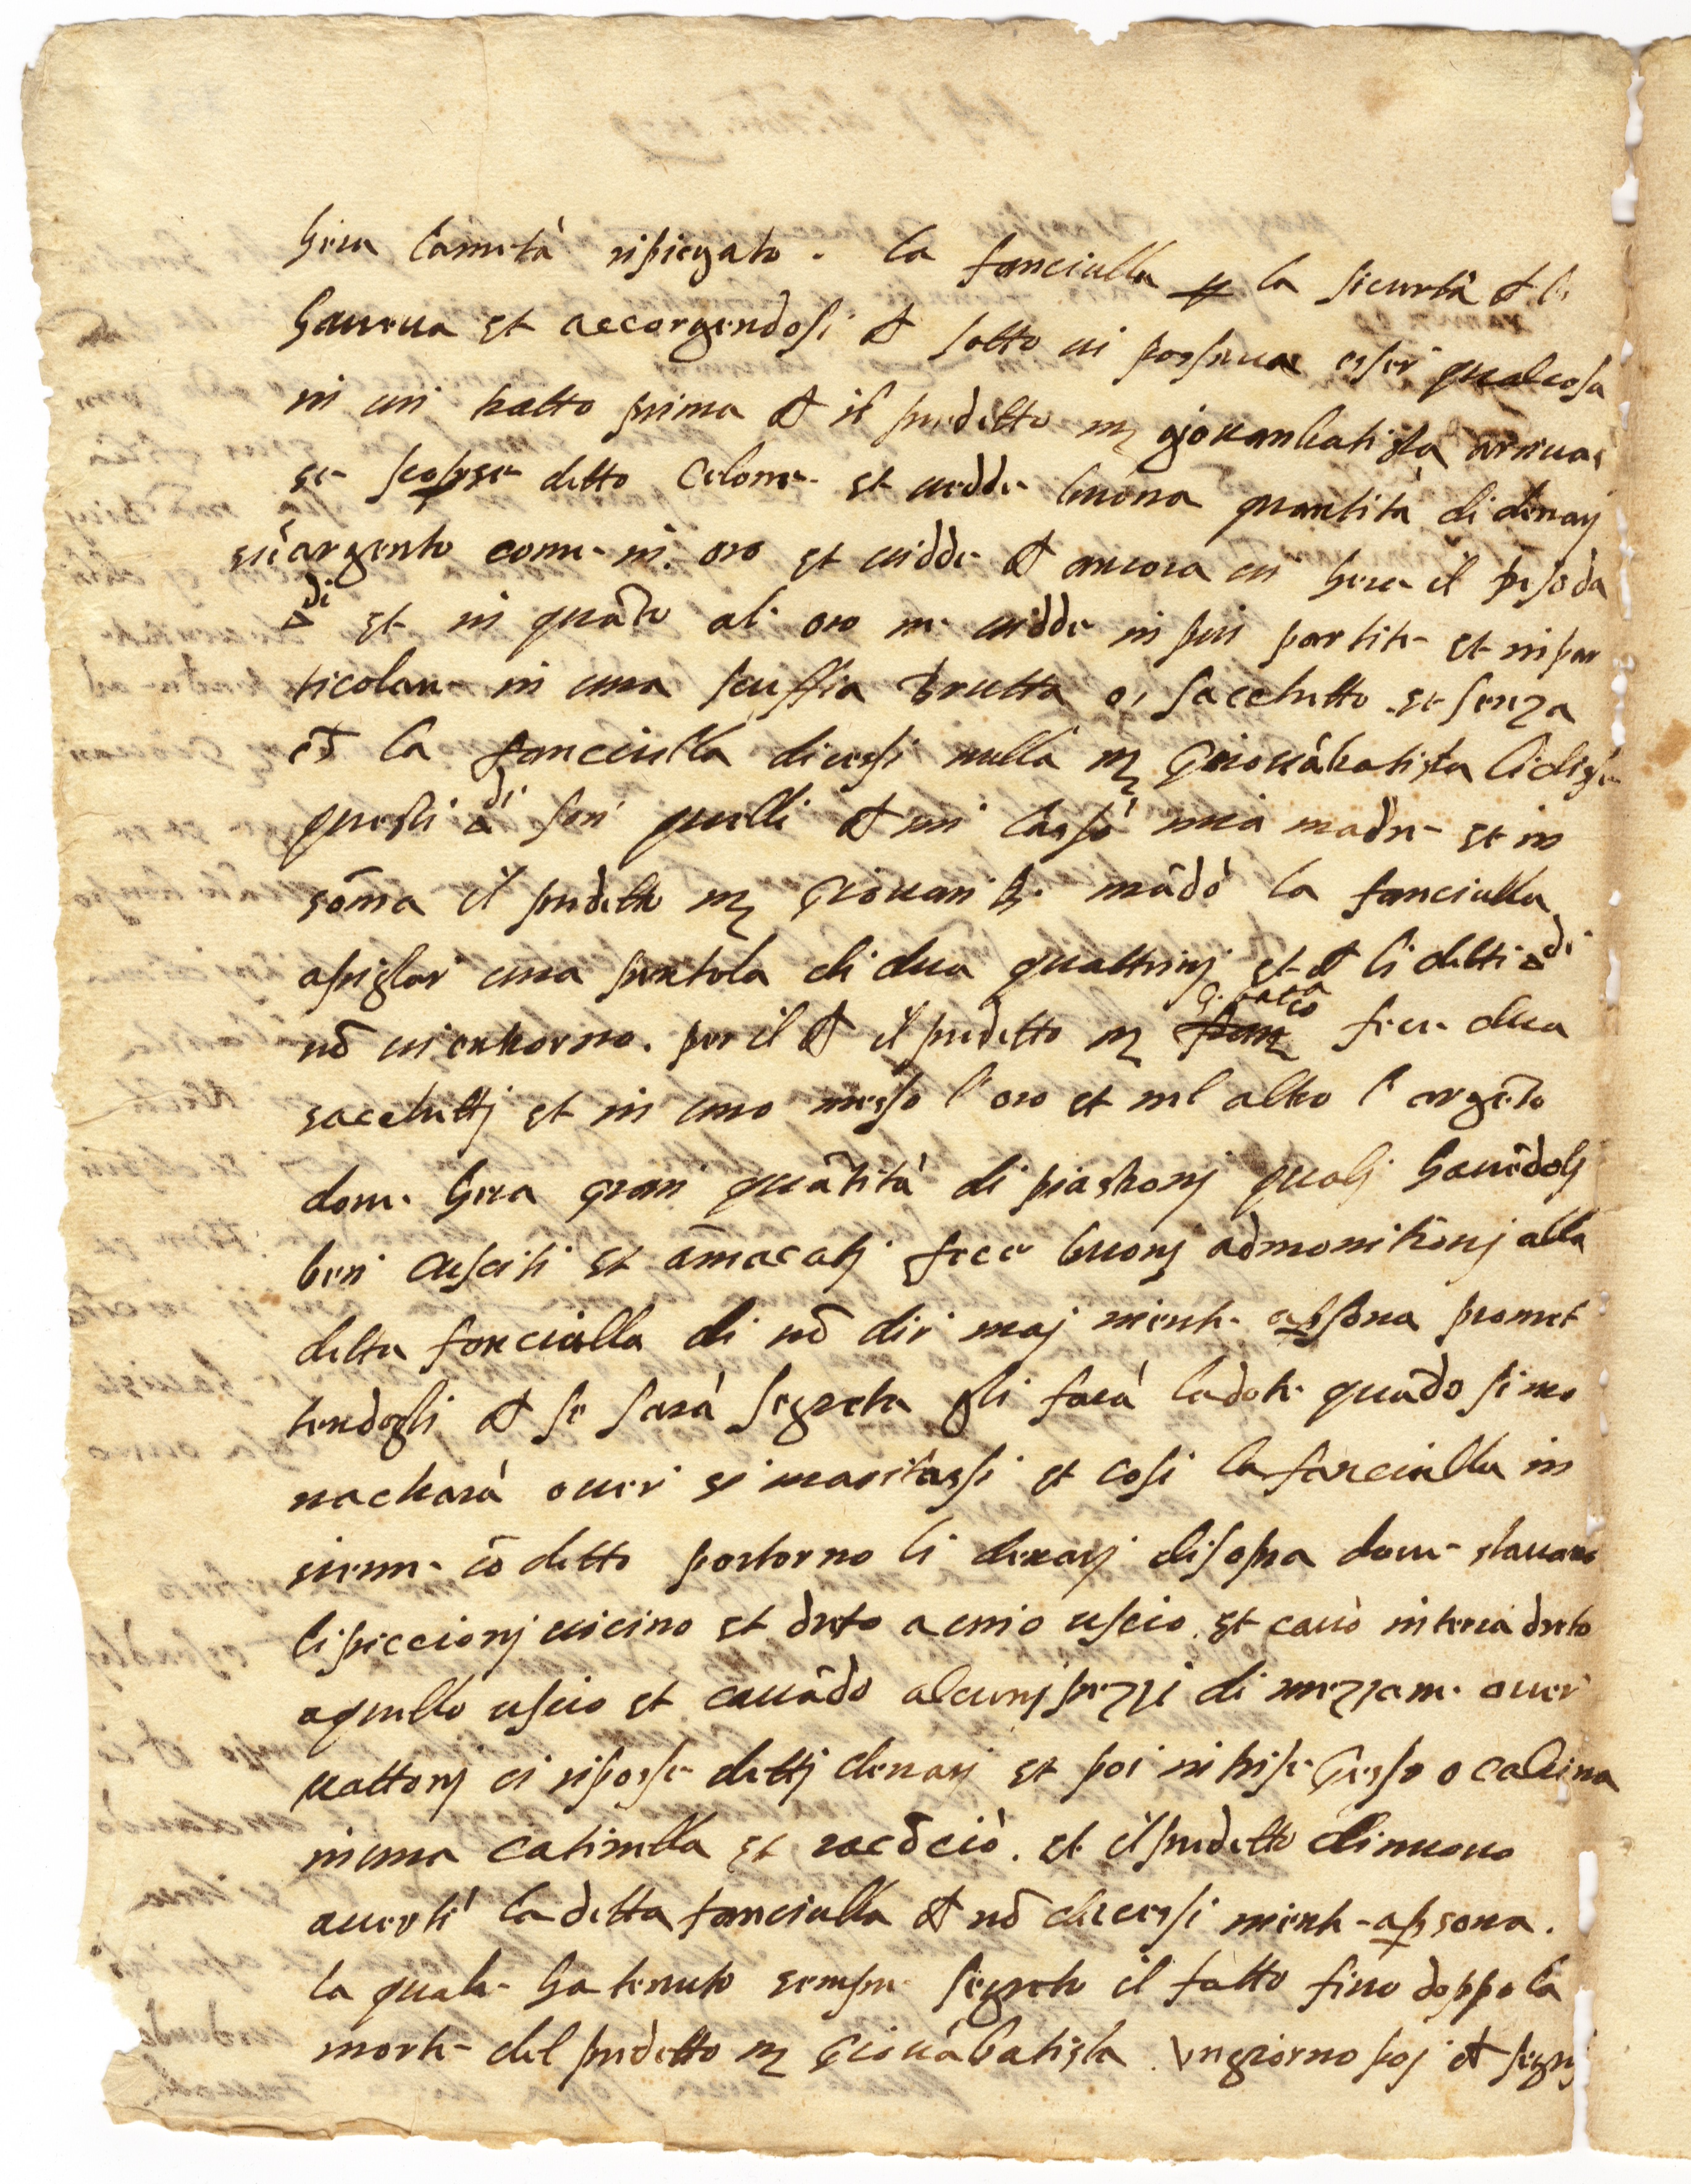 hera la metà ripiegato. la fanciulla p la sicurtà ch li
haueua et accorgendosi ch sotto ui posseua esser qualcosa
in un tratto prima ch il predetto m giouanbatista arriuas
se scopse detto Celone et uedde buona quantità di denarj
sì ī argento come in oro et uidde ch ancora ui hera il peso da
▵di et in quāto al oro ne uidde in piu partite et in par
ticolare in una scuffia Brutta o, sacchetto et senza
ch la fanciulla dicessi nulla m Giouābatista li disse
questi ▵di son quelli ch mi lassò mia madre et in
sōma il predetto m Giouan B. mādò la fanciulla
a piglar una pentola di dua quattrinj et ch li detti ▵di
nō uj entrorno. per il ch il predetto m G. bat.ta fece dua
sacchettj et in uno messo l'oro et nel altro l'argēto
doue hera gran quātità di piastronj qualj hauēdolj
ben cusciti et āmacatj fece buonj admonitionj alla
detta fanciulla di nō dir maj niente a psona promet
tendogli ch se sarà segreta gli farà la dote quādo si mo
nacharà ouer si maritassi et cosi la fanciulla in
sieme cō detto portorno li denarj di sopra doue stauano
li piccionj uicino et dreto a unio uscio. et cauò in terra dreto
a quello uscio et cauādo alcunj pezzi di mezzane ouer
mattonj ui ripose dettj denarj et poi intrise Gesso o calcina
in una catinella et racōciò. et il predetto di nuouo
auertì la detta fanciulla ch nō dicessi niente a psona.
la quale ha tenuto sempre segreto il fatto fino doppo la
morte del predetto m Giouābatista. Un giorno poj ch segnj